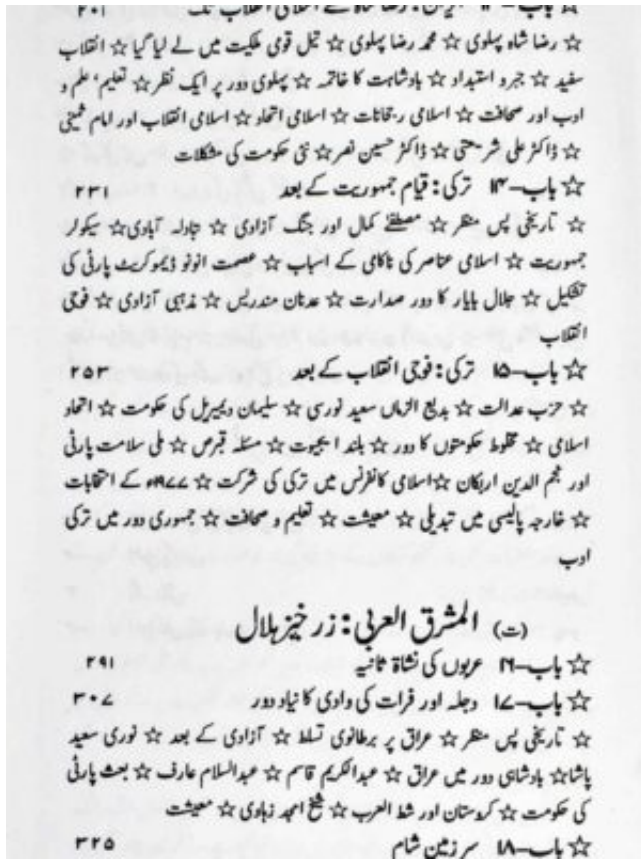 ☆ باب-۱۳ ایران: رضا شاہ سے اسلامی انقلاب تک ۲۰۱
☆ رضا شاہ پہلوی ☆ محمد رضا پہلوی ☆ تیل قومی ملکیت میں لے لیا گیا ☆ انقلاب
سفید ☆ جبرو استبداد ☆ بادشاہت کا خاتمہ ☆ پہلوی دور پر ایک نظر ☆ تعلیم، علم و
ادب اور صحافت ☆ اسلامی رجحانات ☆ اسلامی اتحاد ☆ اسلامی انقلاب اور امام خمینی
☆ ڈاکٹر علی شریعتی ☆ ڈاکٹر حسین نصر ☆ نئی حکومت کی مشکلات
☆ باب-۱۴ ترکی: قیام جمہوریت کے بعد ۲۳۱
☆ تاریخی پس منظر ☆ مصطفےٰ کمال اور جنگ آزادی ☆ تبادلہ آبادی ☆ سیکولر
جمہوریت ☆ اسلامی عناصر کی ناکامی کے اسباب ☆ عصمت انونو ڈیموکریٹ پارٹی کی
تشکیل ☆ جلال بایار کا دور صدارت ☆ عدنان مندریس ☆ مذہبی آزادی ☆ فوجی
انقلاب
☆ باب-۱۵ ترکی: فوجی انقلاب کے بعد ۲۵۳
☆ حزب عدالت ☆ بدیع الزماں سعید نورسی ☆ سلیمان دیمیریل کی حکومت ☆ اتحاد
اسلامی ☆ مخلوط حکومتوں کا دور ☆ بلند ایجیوت ☆ مسئلہ قبرص ☆ ملی سلامت پارٹی
اور نجم الدین اربکان ☆ اسلامی کانفرنس میں ترکی کی شرکت ☆ ۱۹۷۷ء کے انتخابات
☆ خارجہ پالیسی میں تبدیلی ☆ معیشت ☆ تعلیم و صحافت ☆ جمہوری دور میں ترکی
ادب
(ت) المشرق العربی: زرخیز ہلال
☆ باب-۱۶ عربوں کی نشاۃ ثانیہ ۲۹۱
☆ باب-۱۷ دجلہ اور فرات کی وادی کا نیا دور ۳۰۷
☆ تاریخی پس منظر ☆ عراق پر برطانوی تسلط ☆ آزادی کے بعد ☆ نوری سعید
پاشا ☆ بادشاہی دور میں عراق ☆ عبدالکریم قاسم ☆ عبدالسلام عارف ☆ بعث پارٹی
کی حکومت ☆ کردستان اور شط العرب ☆ شیخ امجد زہاوی ☆ معیشت
☆ باب-۱۸ سرزمین شام ۳۲۵